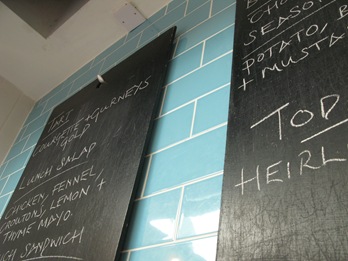 TART
COURGETTE + GURNEYS
GOLD
LUNCH SALAD
CHICKEN, FENNEL,
CROUTONS, LEMON +
THYME MAYO.
SANDWICH
SEASON
POTATO,
+ MUSTA
TOD
HEIRL